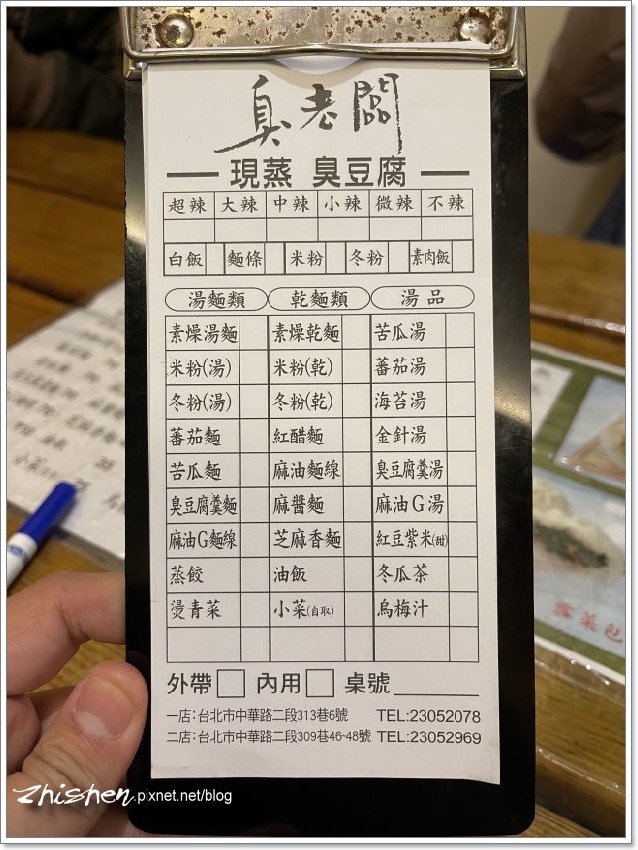 臭老闆
現蒸 臭豆腐
超辣 大辣 中辣 小辣 微辣 不辣
白飯 麵條 米粉 冬粉 素肉飯
湯麵類 乾麵類 湯品
素燥湯麵 素燥乾麵 苦瓜湯
米粉(湯) 米粉(乾) 蕃茄湯
冬粉(湯) 冬粉(乾) 海苔湯
蕃茄麵 紅醋麵 金針湯
苦瓜麵 麻油麵線 臭豆腐羹湯
臭豆腐羹麵 麻醬麵 麻油G湯
麻油G麵線 芝麻香麵 紅豆紫米(甜)
蒸餃 油飯 冬瓜茶
燙青菜 小菜(自取) 烏梅汁
外帶 內用 桌號
一店:台北市中華路二段313巷6號 TEL:23052078
二店:台北市中華路二段309巷46-48號 TEL:23052969
zhishen.pixnet.net/blog